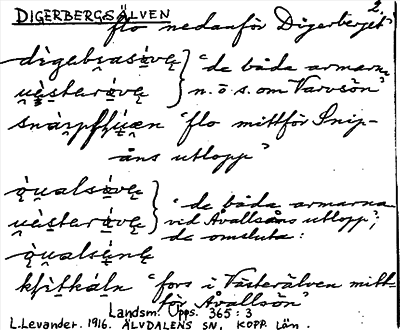 2.
DIGERBERGSÄLVEN
flo nedanför Digerberget"
digebsasǫvę } "de båda armarna
vęsterǫvę } n. o s. om Varvsön"
"flo mittför Snip-
åns utlopp"
ǫvalsǫvę } "de båda armarna
vęsterǫvę } vid Åvallsåns utlopp";
de omsluta:
"fors i Västerälven mitt-
för Åvallsön"
Landsm. Upps. 365 : 3
L. Levander. 1916. ÄLVDALENS SN, KOPP. LÄN.